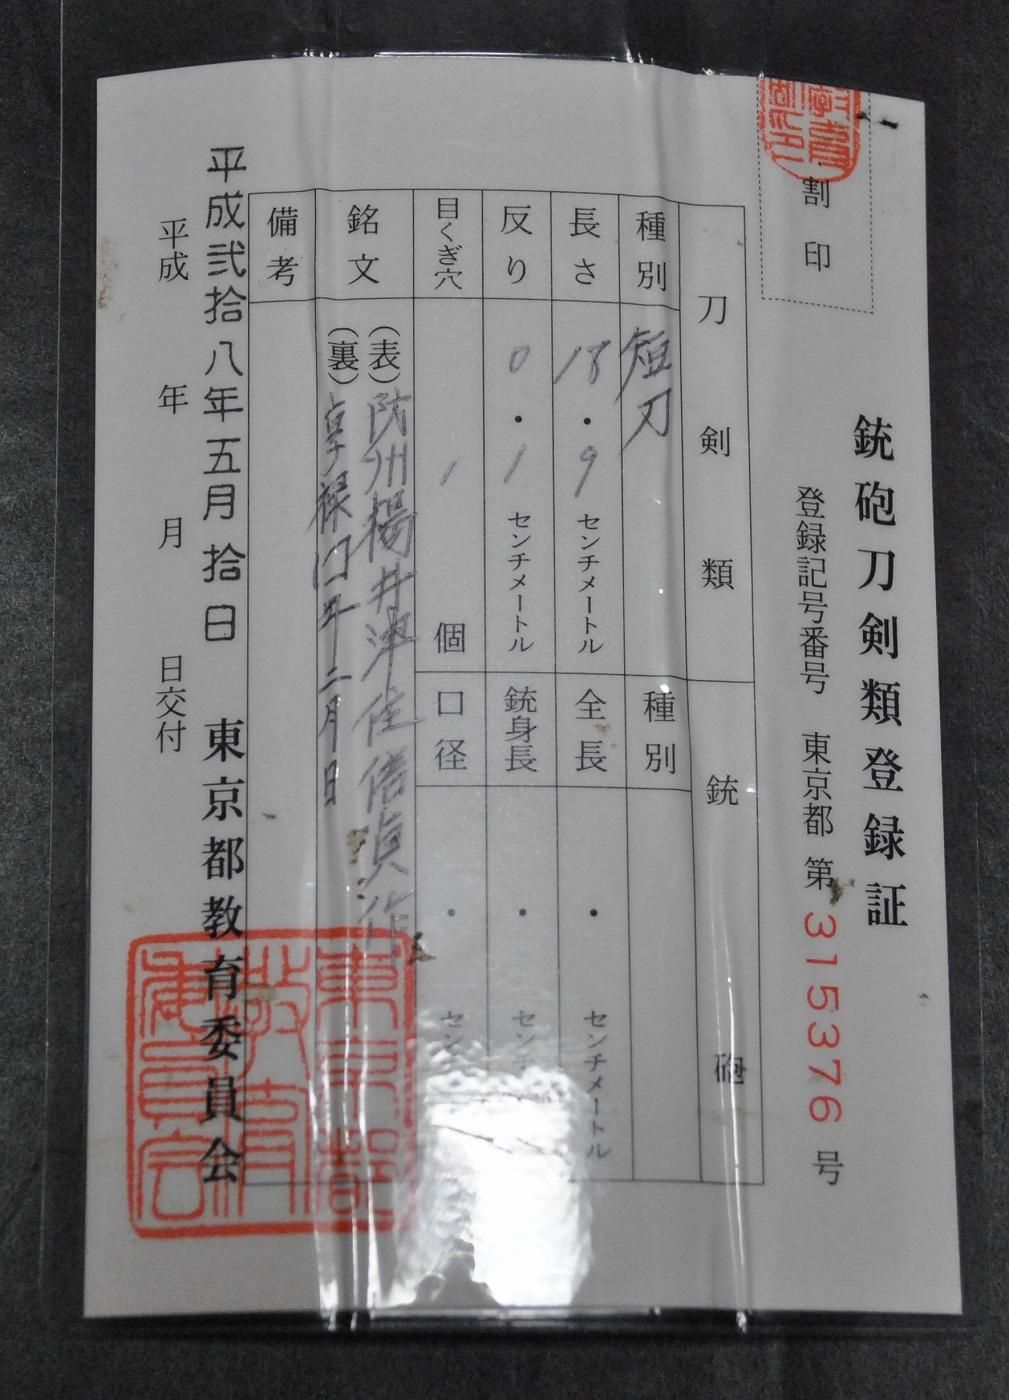 割印
銃砲刀剣類登録証
登録記号番号 東京都 第315376号
刀剣類
銃砲
種別 短刀
種別
長さ 18・9 センチメートル
全長 ・ センチメートル
反り 0・1 センチメートル
銃身長 ・ センチ
目くぎ穴 1 個
口径 ・ セン
銘文 (表)防州楊井津住信貞作
(裏)享禄四年二月日
備考
平成弐拾八年五月拾日 東京都教育委員会
平成 年 月 日交付
東京都教育委員会